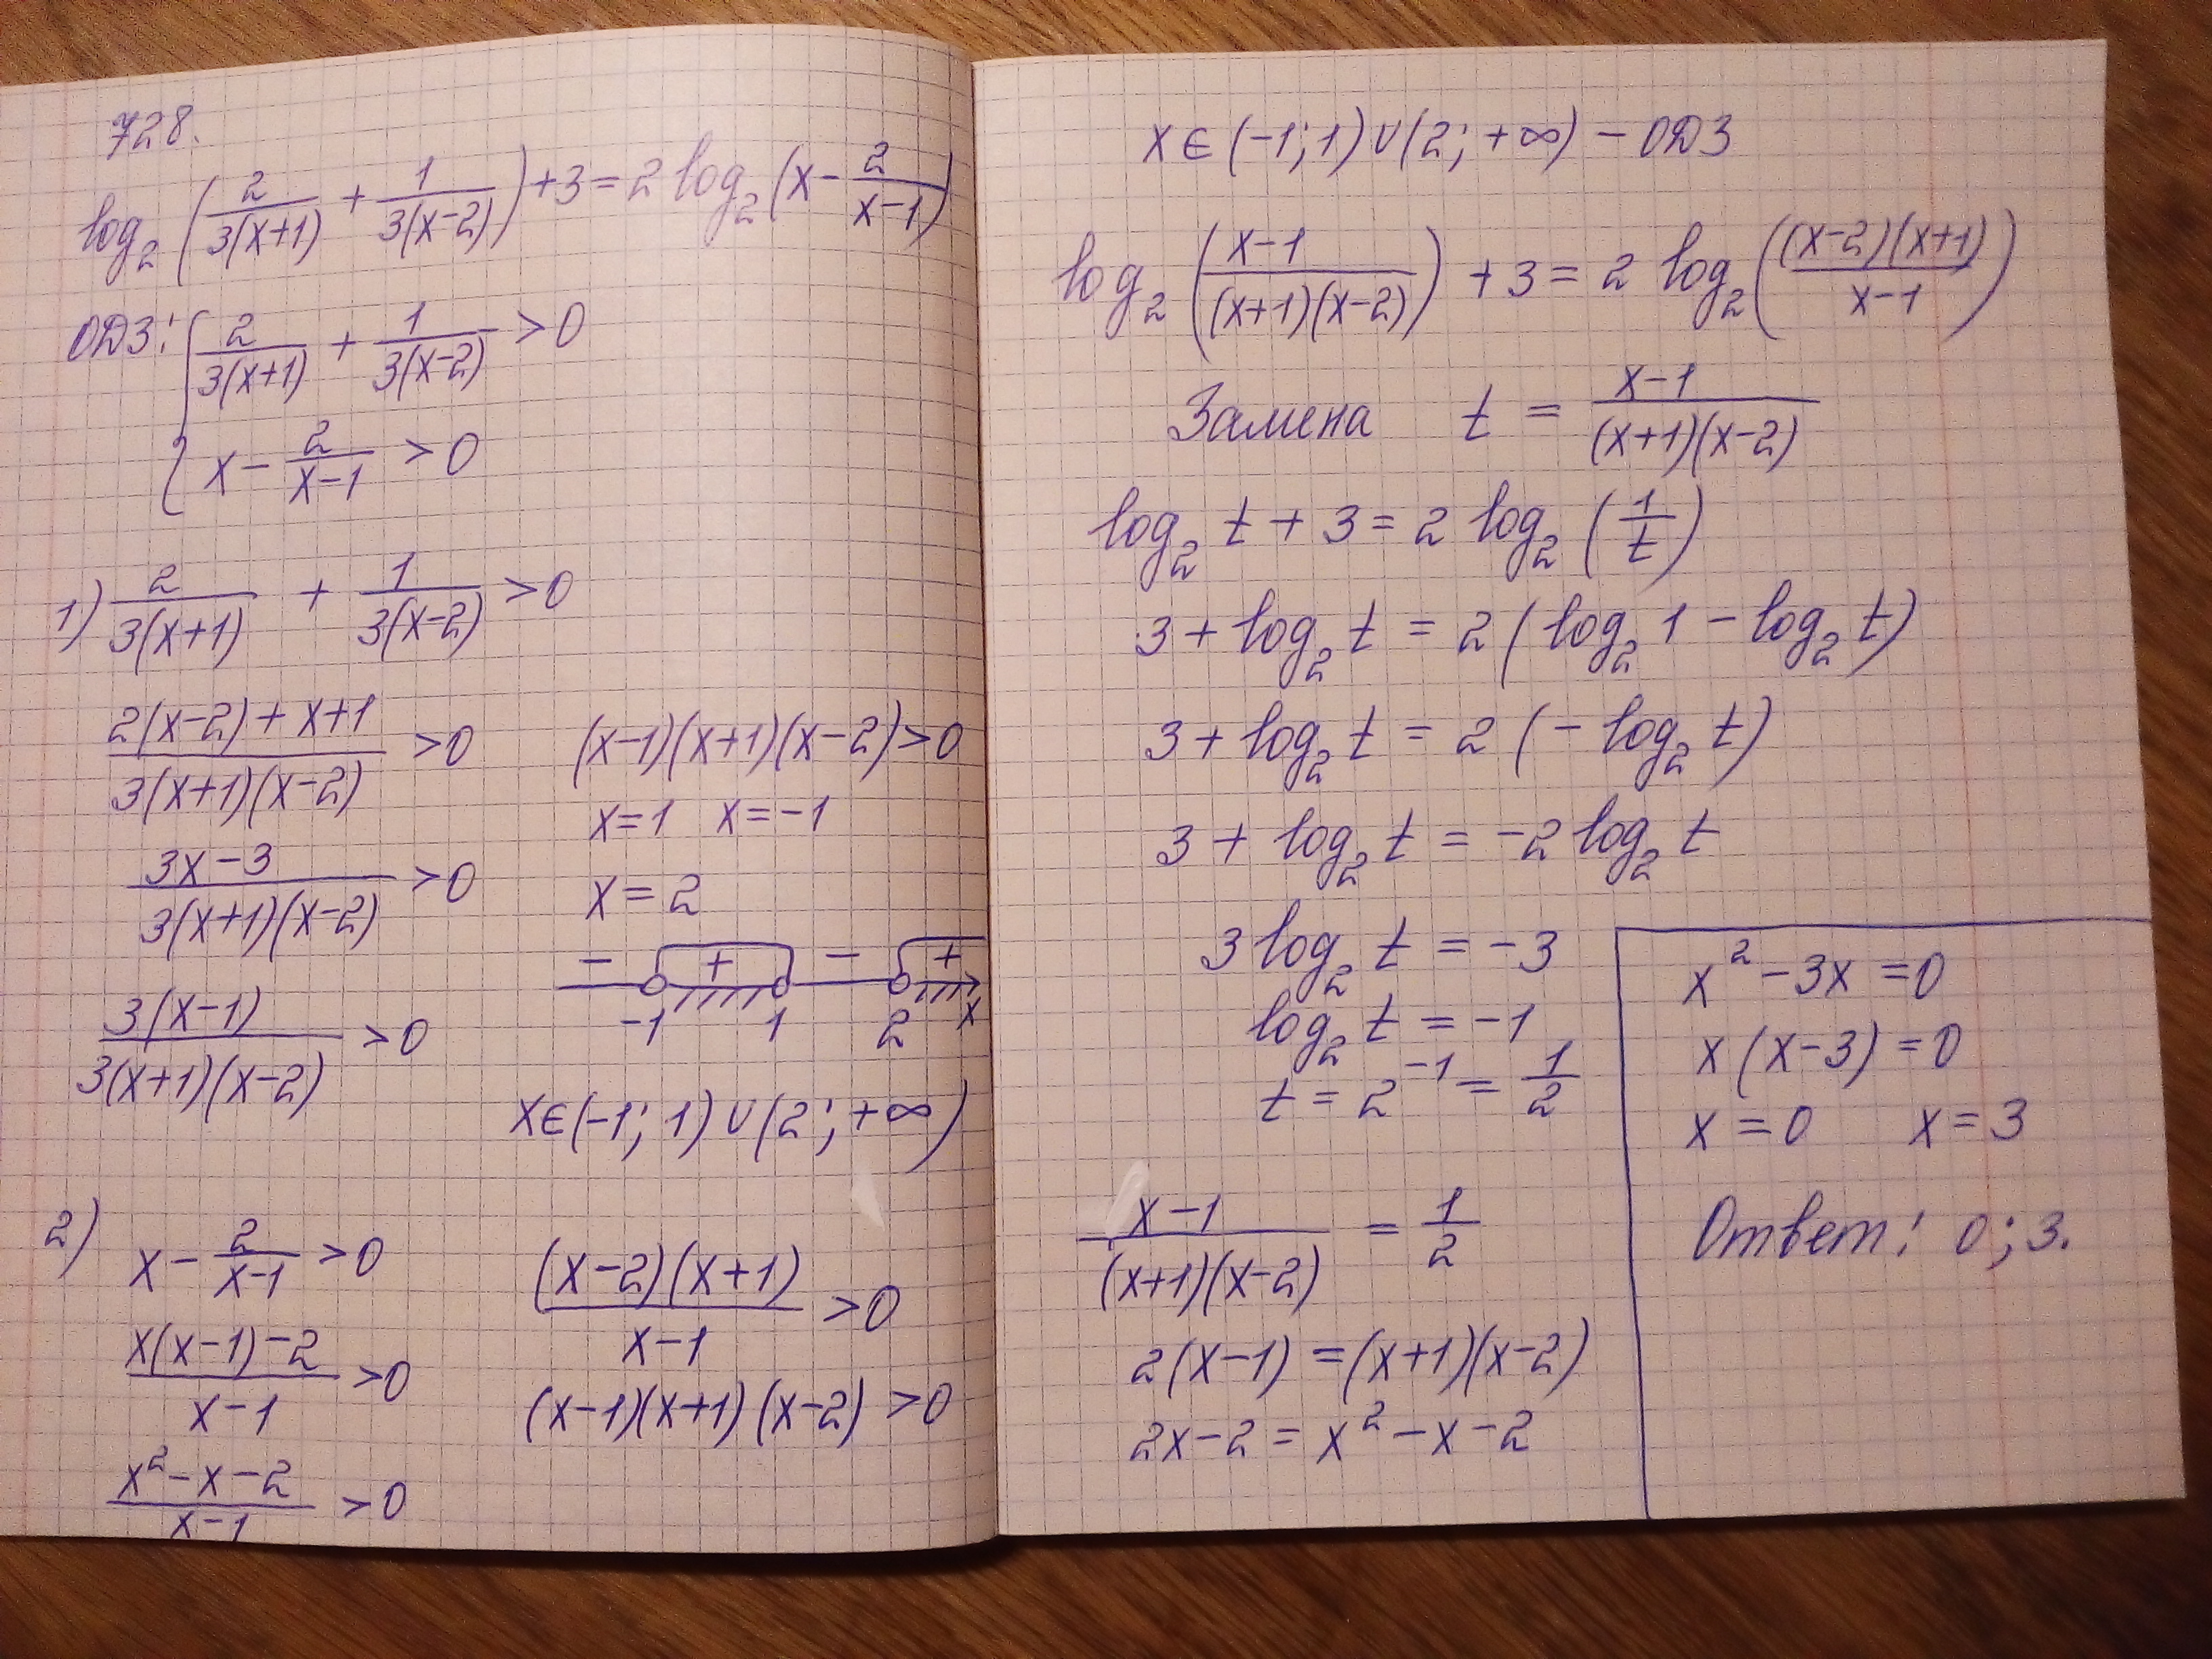 728.
log₂(2/(3(x+1)) + 1/(3(x-2))) + 3 = 2 log₂(x - 2/(x-1))
ОДЗ: { 2/(3(x+1)) + 1/(3(x-2)) > 0
x - 2/(x-1) > 0
1) 2/(3(x+1)) + 1/(3(x-2)) > 0
(2(x-2)+x+1)/(3(x+1)(x-2)) > 0
(3x-3)/(3(x+1)(x-2)) > 0
3(x-1)/(3(x+1)(x-2)) > 0
(x-1)(x+1)(x-2)>0
x=1 x=-1
x=2
- + - +
-1 1 2 x
x∈(-1;1)∪(2;+∞)
2) x - 2/(x-1) > 0
(x(x-1)-2)/(x-1) > 0
(x²-x-2)/(x-1) > 0
((x-2)(x+1))/(x-1) > 0
(x-1)(x+1)(x-2) > 0
x∈(-1;1)∪(2;+∞) - ОДЗ
log₂((x-1)/((x+1)(x-2))) + 3 = 2 log₂(((x-2)(x+1))/(x-1))
Замена t = (x-1)/((x+1)(x-2))
log₂ t + 3 = 2 log₂(1/t)
3 + log₂ t = 2(log₂ 1 - log₂ t)
3 + log₂ t = 2(-log₂ t)
3 + log₂ t = -2 log₂ t
3 log₂ t = -3
log₂ t = -1
t = 2⁻¹ = 1/2
(x-1)/((x+1)(x-2)) = 1/2
2(x-1) = (x+1)(x-2)
2x-2 = x²-x-2
x²-3x=0
x(x-3)=0
x=0 x=3
Ответ: 0;3.